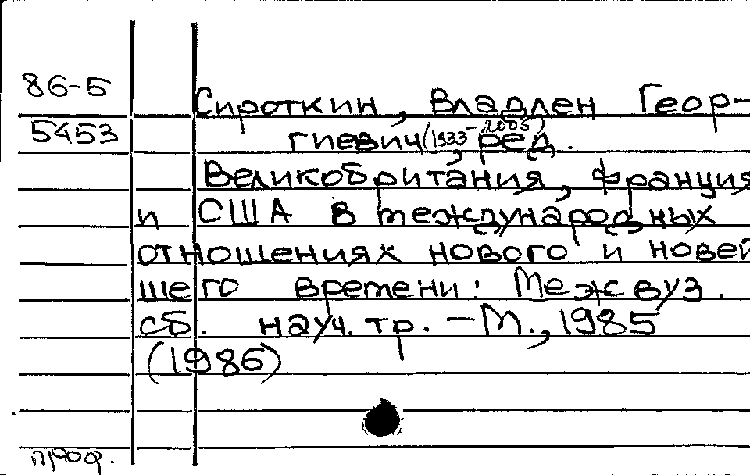 86-5
5453
Сироткин, Владлен Геор-
гиевич (1933-2005), ред.
Великобритания, Франция
и США в международных
отношениях нового и новей
шего времени: Межвуз.
сб. науч. тр. – М., 1985
(1986)
проф.